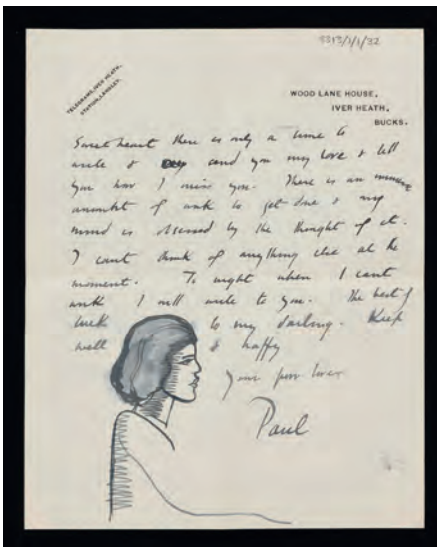 3313/1/1/32
TELEGRAMS, IVER HEATH.
STATION, LANGLEY.
WOOD LANE HOUSE,
IVER HEATH,
BUCKS.
Sweetheart there is only a time to
write & send you my love & tell
you how I miss you. There is an immense
amount of work to get done & my
mind is obsessed by the thought of it.
I cant think of anything else at the
moment. To night when I cant
work I will write to you. The best of
luck to my darling. Keep
well & happy
Your poor lover
Paul